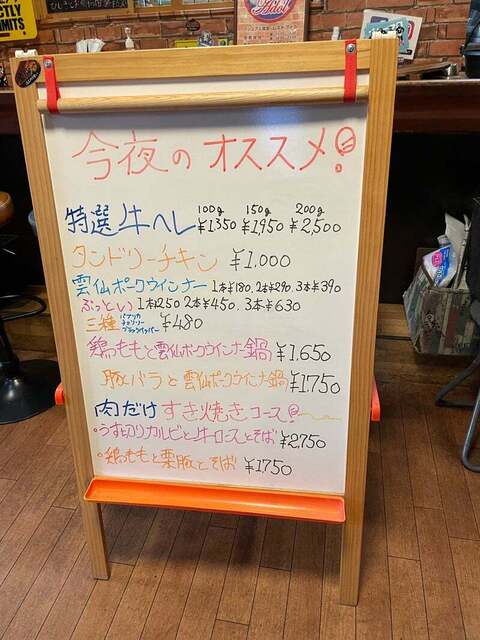 CTLY
IMITS
今夜のオススメ!
100g 150g 200g
特選牛ヘレ ¥1350 ¥1950 ¥2,500
タンドリーチキン ¥1,000
雲仙ポークウインナー 1本¥180, 2本¥290. 3本¥390
ぶっとい 1本¥250 2本¥450. 3本¥630
三種 パプリカ チョリソー ブラックペッパー ¥480
鶏ももと雲仙ポークウインナー鍋 ¥1.650
豚バラと雲仙ポークウインナ鍋 ¥1750
肉だけすき焼きコース!
・うす切りカルビと牛ロースとそば ¥2750
・鶏ももと栗豚とそば ¥1750